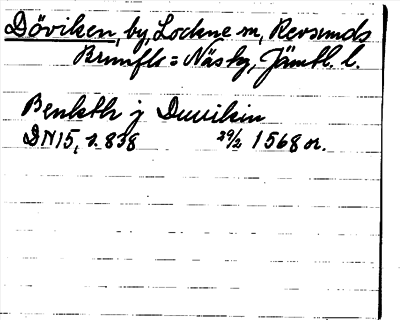 Döviken, by, Lockne sn, Revsunds
Brunflo = Näsby, Jämtl. l.
Benkth j Duuikin
DN15, s. 838 29/2 1568 or.